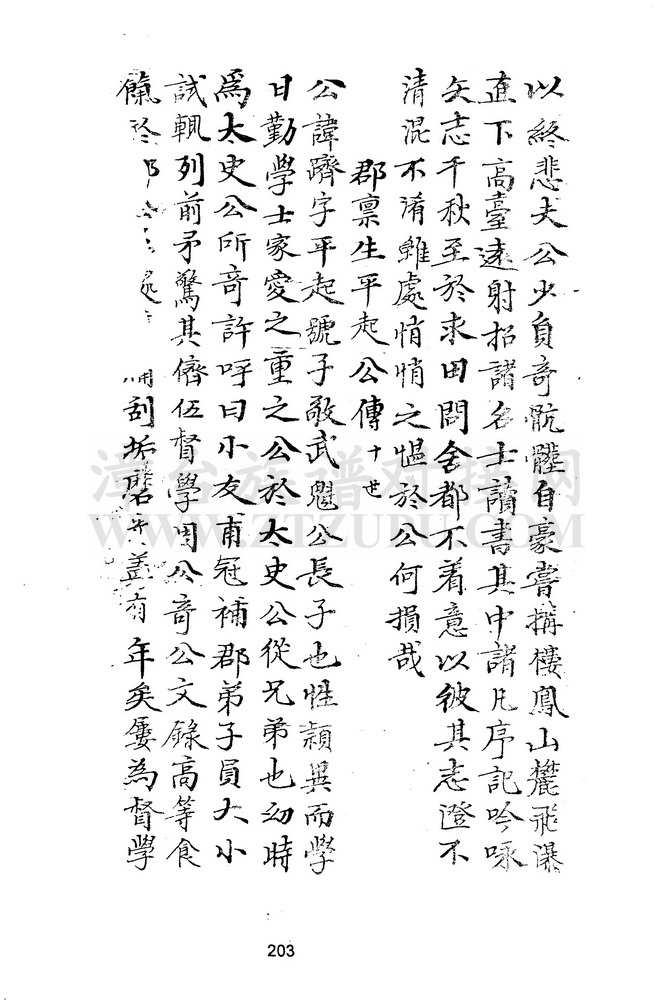 以終悲夫公少負奇骯髒自豪嘗搆樓鳳山麓飛瀑
直下高臺遠射招諸名士讀書其中諸凡序記吟咏
矢志千秋至於求田問舍都不着意以彼其志澄不
清混不淆雖處悄悄之慍於公何損哉
郡禀生平起公傳十世
公諱躋字平起號子敬武魁公長子也性頴異而學
日勤學士家愛之重之公於太史公從兄弟也幼時
爲太史公所竒許呼曰小友甫冠補郡弟子員大小
試輒列前矛驚其儕伍督學周公竒公文錄高等食
餼於郡刮垢磨光盖有年矣屢為督學
漳台族譜对接网
WWW.ZTZUPU.COM
203